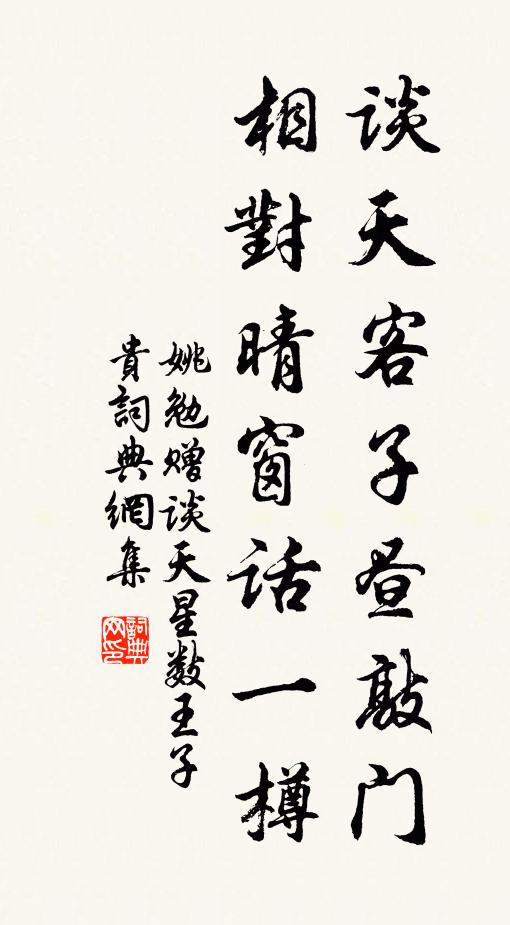 谈天客子昼敲门
相對晴窗話一樽
姚勉赠谈天星数王子
貴詞典網集
詞典网印